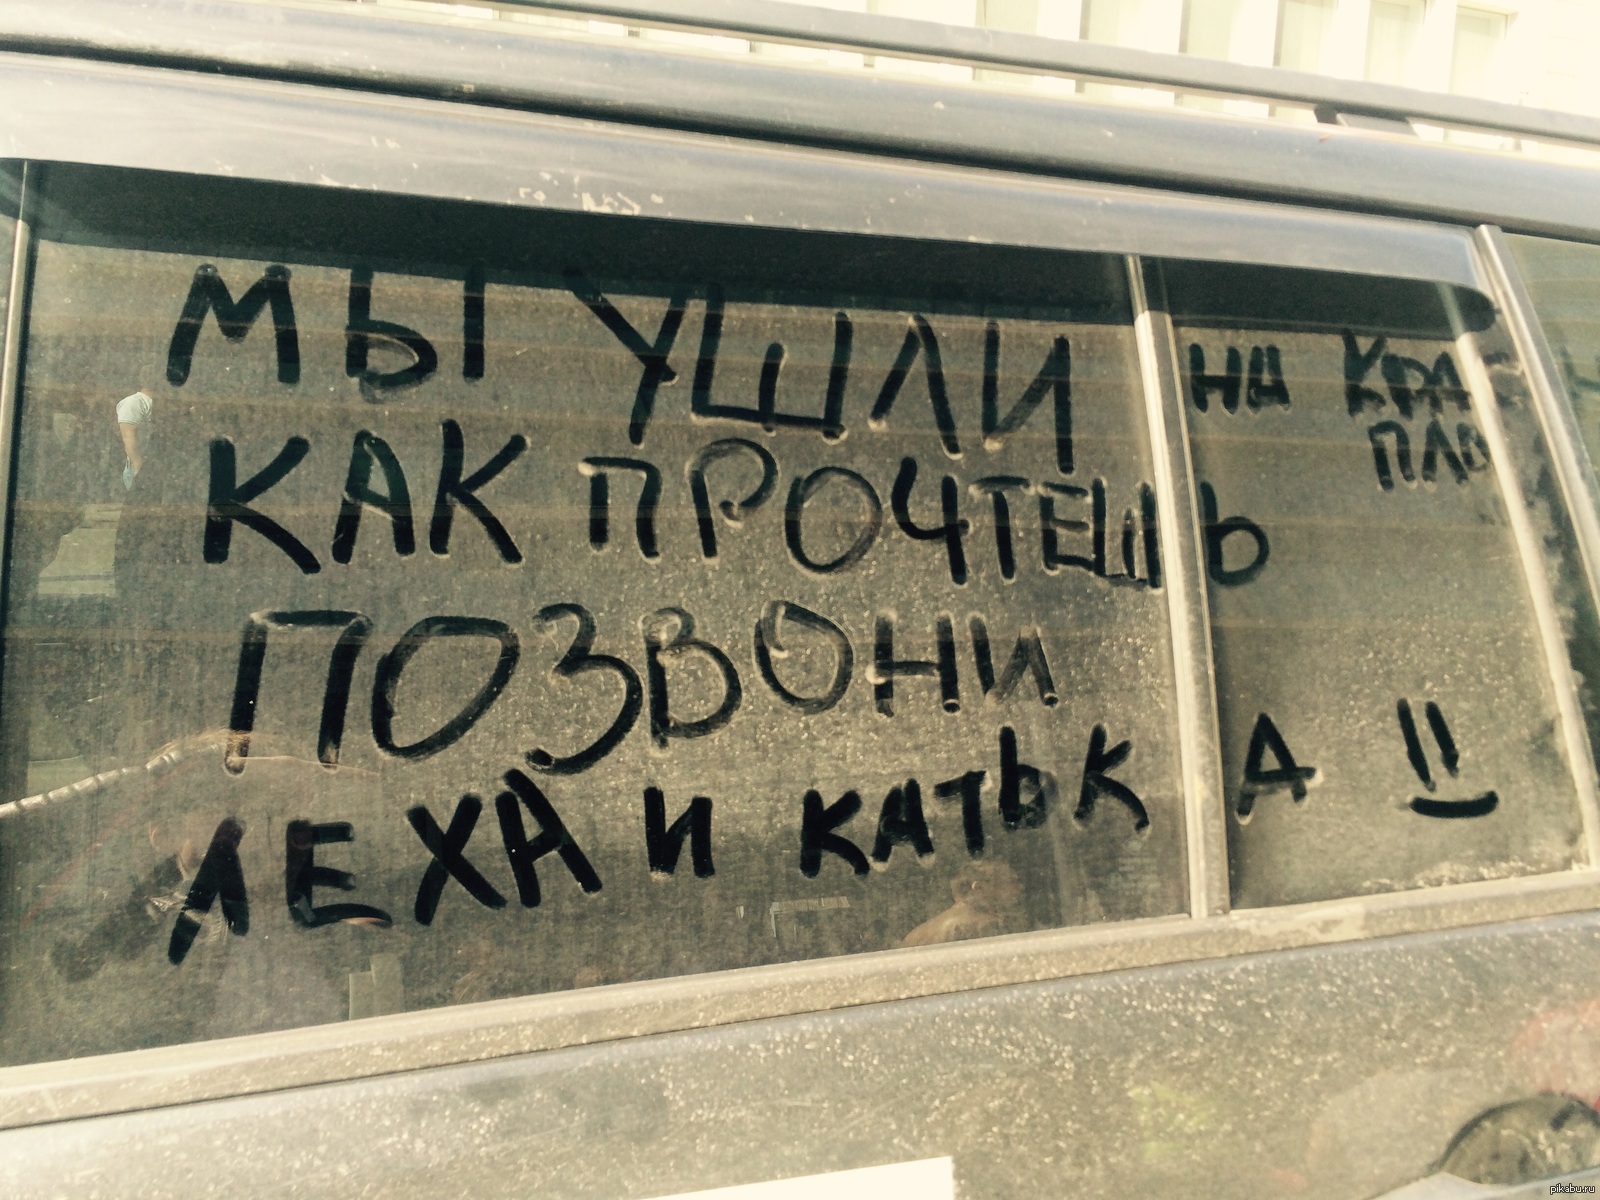 МЫ УШЛИ НА
КАК ПРОЧТЕШЬ
ПОЗВОНИ
ЛЕХА И КАТЬКА !!
pikabu.ru